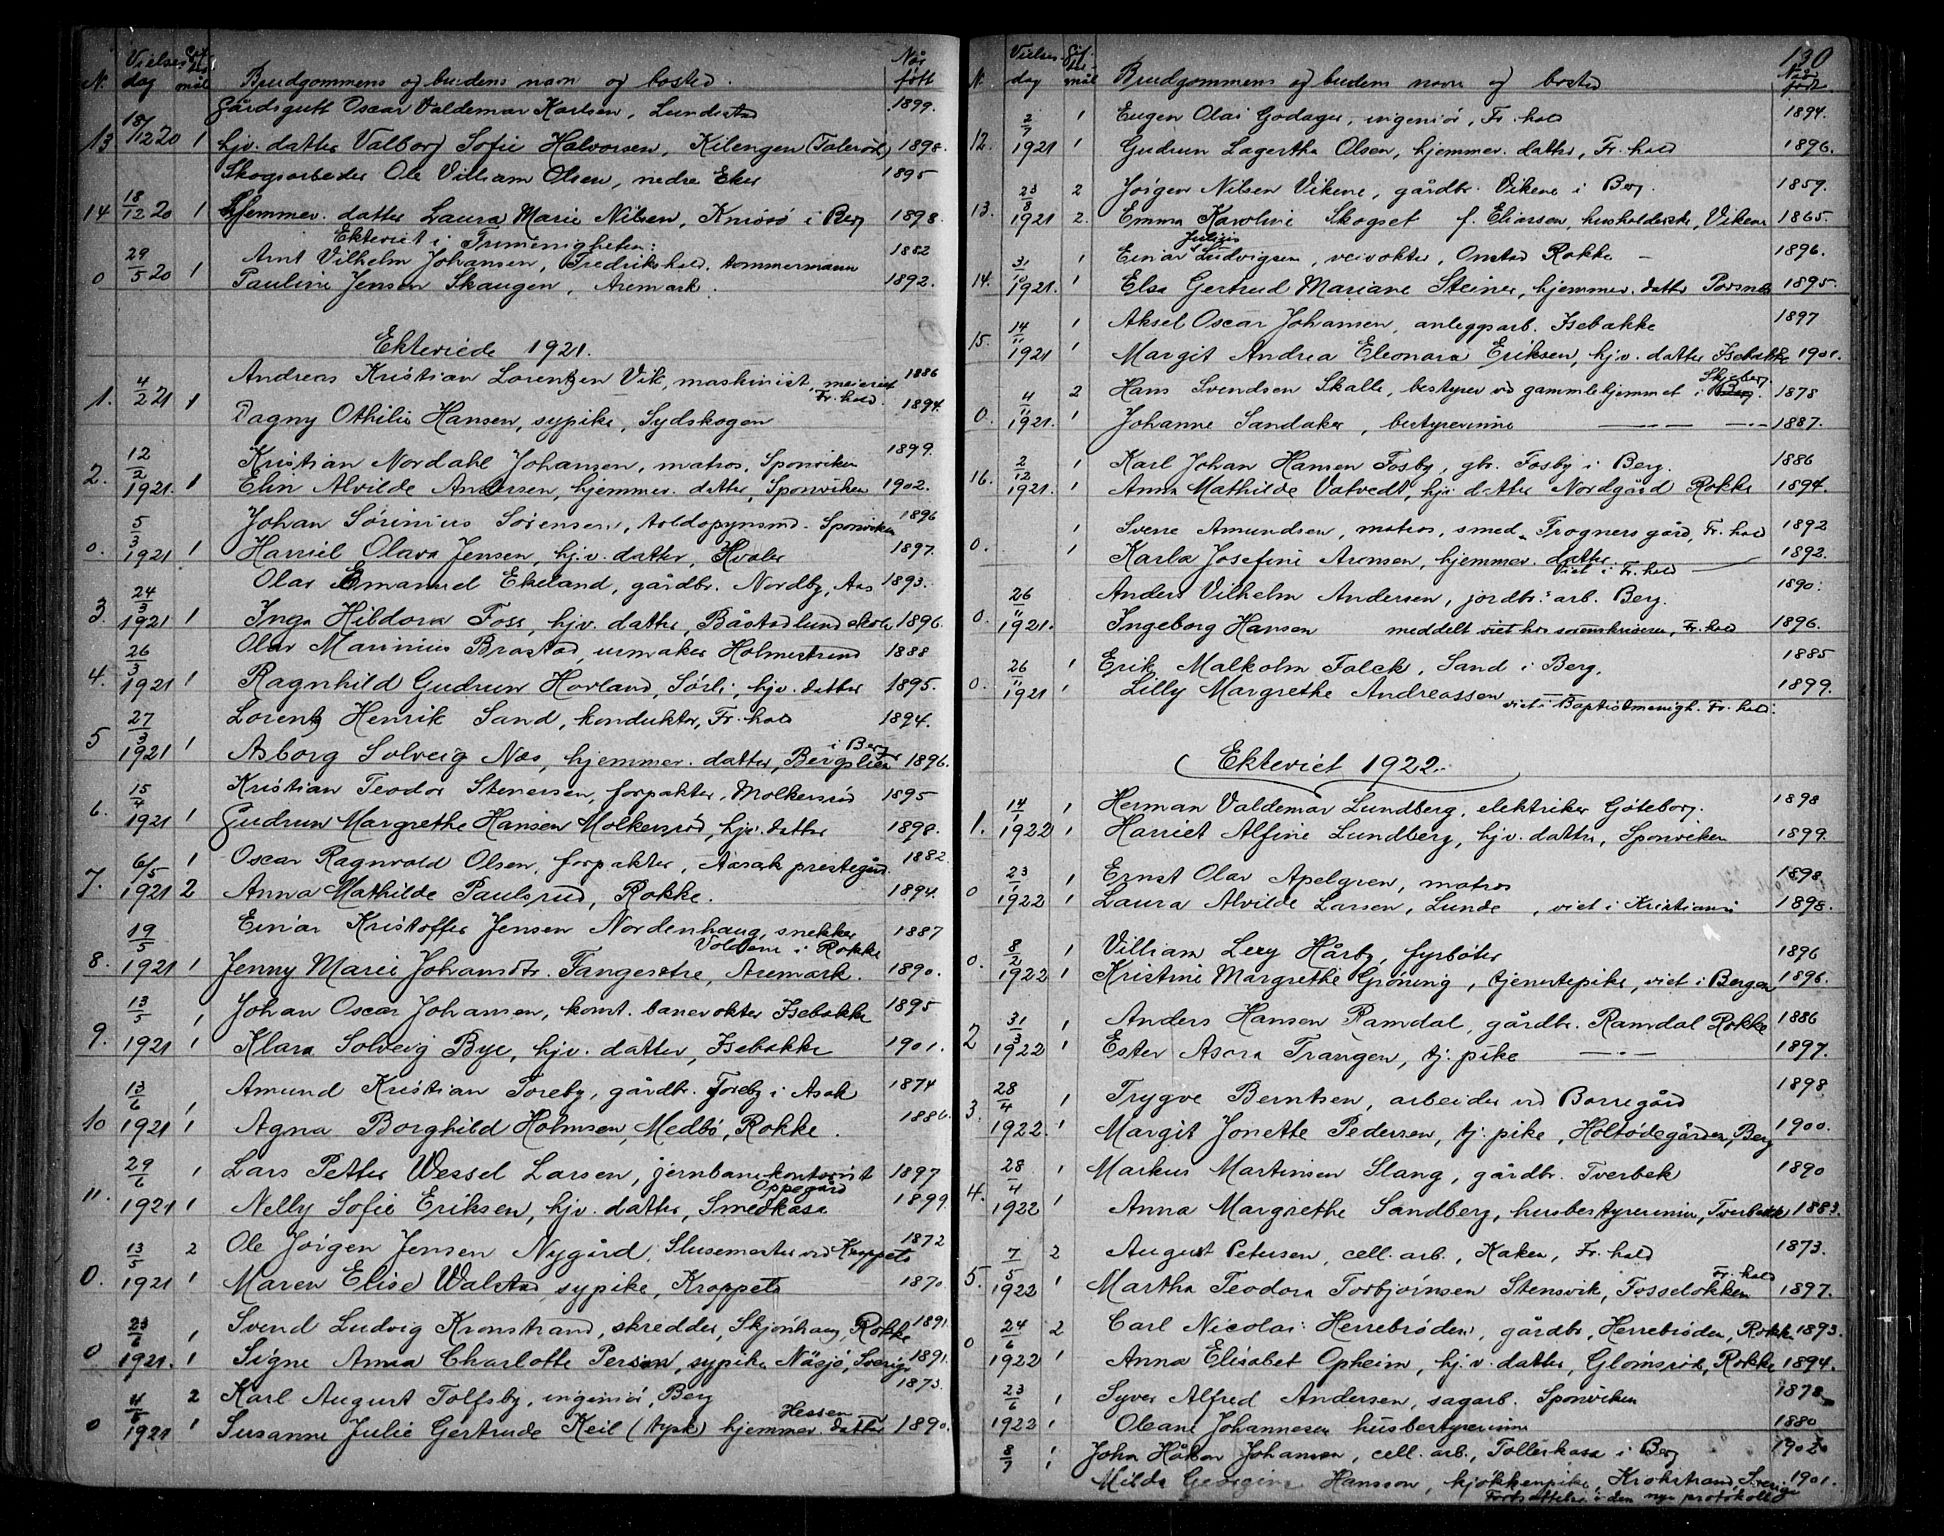 N. Vielses dag Gifterm mål Brudgommens og brudens navn og bosted. Når født
Gårdsgutt Oscar Valdemar Karlsen, Lundestad 1899.
13 18/12 20 1 hjv. datter Valborg Sofie Halvorsen, Kilengen (Tolerød) 1898.
Skogsarbeider Ole Villiam Olsen, nedre Eker 1895
14 18/12 20 1 Hjemmev. datter Laura Marie Nilsen, Kniøsø i Berg 1898.
Ekteviet i Frimenigheten:
29/5 20 1 Arnt Vilhelm Johansen, Fredrikshald. tømmermann 1882
0 Pauline Jensen Skaugen, Aremark. 1892.
Ekteviede 1921.
4/2 21 Andreas Kristian Lorentzen Vik, maskinist, meieriet Fr.hald. 1886
1. 1 Dagny Othilie Hansen, sypike, Sydskogen 1894.
12/2 Kristian Nordahl Johansen, matros, Sponviken 1899.
2. 1921. 1 Elin Alvilde Andersen, hjemmev. datter, Sponviken 1902.
5/3 Johan Sørinius Sørensen, toldopynsmd. Sponviken 1896
0. 1921 1 Harriet Olava Jensen, hj.v. datter, Hvaler 1897.
24/3 Olav Emanuel Ekeland, gårdbr. Nordby, Aas 1893.
3. 1921 1 Inga Hildora Foss, hjv. datter, Båstadlund skole 1896.
26/3 Olav Marinius Brastad, urmaker Holmestrand 1888
4. 1921 1 Ragnhild Gudrun Hovland, Sørli, hjv. datter 1895.
27/3 Lorentz Henrik Sand, konduktør, Fr.hald 1894.
5 1921 1 Asborg Solveig Næs, hjemmev. datter, Bergslien i Berg 1896.
15/4 Kristian Teodor Stenersen, forpakter, Molkersrød 1895
6. 1921 1 Gudrun Margrethe Hansen Molkersrød, hjv. datter 1898.
6/5 1 Oscar Ragnvald Olsen, forpakter, Aasak prestegård 1882.
7. 1921 2 Anna Mathilde Paulsrud, Rokke. 1894.
19/5 Einar Kristoffer Jensen Nordenhaug, snekker Voldene i Rokke 1887
8. 1921 1 Jenny Marie Johansdtr. Tangestre, Aremark. 1890.
13/5 1 Johan Oscar Johansen, konst. banevokter Isebakke 1895
9. 1921 1 Klara Solveig Bye, hjv. datter, Isebakke 1901.
13/6 1 Amund Kristian Toreby, gårdbr. Toreby i Asak 1874
10 1921 1 Agna Borghild Holmsen, Medbø, Rokke. 1886.
29/6 1 Lars Petter Wessel Larsen, jernbanekontorist 1897
11. 1921 1 Nelly Sofie Eriksen, hjv. datter, Smedkasa Oppegård 1899
13/5 2 Ole Jørgen Jensen Nygård, Slusemester ved Kroppets 1872
0. 1921 1 Maren Elise Walstad sypike, Kroppets 1870
23/6 1 Svend Ludvig Kronstrand, skredder, Skjønhaug, Rokke 1891.
0 1921. 1 Signe Anna Charlotte Person, sypike Näsjö, Sverige 1891.
4/8 2 Karl August Tolfsby, ingeniør, Berg 1873.
0 1921 1 Susanne Julie Gertrude Keil (tysk) hjemmev. datter Hessen 1890.
130
N. Vielses dag Gif. te. mål Brudgommens og brudens navn og bosted Når født
2/7 1 Eugen Olai Godager, ingeniør, Fr.hald 1894.
12. 1921 1 Gudrun Lagertha Olsen, hjemmev. datter, Fr.hald 1896.
23/8 2 Jørgen Nilsen Vikene, gårdbr. Vikene i Berg. 1859.
13. 1921 2. Emma Karoline Skogset f. Eliassen, husholderske, Vikene 1865.
31/10 1 Einar Julius Ludvigsen, veivokter, Onstad Rokke 1896.
14. 1921. 1 Elsa Gertrud Mariane Steiner, hjemmev. datter Porsnes 1895.
14/11 1 Aksel Oscar Johansen, anleggsarb. Isebakke 1897
15. 1921 1 Margit Andrea Eleonora Eriksen, hjv. datter Isebakke 1901.
4/11 2 Hans Svendsen Skalle, bestyrer ved gammelehjemmet i Berg. Skjeberg. 1878
0. 1921. 1 Johanne Sandaker, bestyrerinne —"— —"— 1887.
2/12 1 Karl Johan Hansen Fosby, gbr. Fosby i Berg. 1886
16. 1921. 1 Anna Mathilde Vatvedt, hjv. datter Nordgård Rokke 1894.
1 Sverre Amundsen, matros, smed, Trogners gård, Fr.hald 1892
0. 1 Karla Josefine Aronsen, hjemmev. datter. viet i Fr.hald 1892.
26/11 Anders Vilhelm Andersen, jordbr.s arb. Berg. 1890.
0. 1921. Ingeborg Hansen meddelt viet hos sorenskriveren, Fr.hald 1896.
26/11 1 Erik Malkolm Falck, Sand i Berg. 1885
0. 1921 1 Lilly Margrethe Andreassen viet i Baptistmenigh. Fr.hald. 1899.
Ekteviet 1922.
14/1 1 Herman Valdemar Lundberg, elektriker Göteborg. 1898
1. 1922 1 Harriet Alfine Lundberg, hj.v. datter, Sponviken 1899.
23/1 1 Ernst Olav Apelgren, matros 1898
0 1922 1 Laura Alvilde Larsen, Lunde, viet i Kristiania 1898.
8/2 1 Villiam Levy Hårby, fyrbøter 1896
0. 1922 1 Kristine Margrethe Grøning, tjenestepike, viet i Bergen 1896.
31/3 1 Anders Hansen Ramdal, gårdbr. Ramdal Rokke 1886
2 1922 1 Ester Asora Trangen, tj. pike —"— 1897.
28/4 1 Trygve Berntsen, arbeider ved Borregård 1898
3. 1922. 1 Margit Jonette Pedersen, tj. pike, Holtødegården, Berg 1900.
28/4 1 Markus Martinsen Slang, gårdbr. Tverbek 1890
4. 1922 1 Anna Margrethe Sandberg, husbestyrerinne, Tverbekk 1883.
7/5 2 August Petersen, cell. arb., Kaken, Fr.hald 1873.
5. 1922 1 Martha Teodora Torbjørnsen Stensvik, Fosseløkken Fr.hald 1897.
24/6 2 Carl Nicolai Herrebrøden, gårdbr, Herrebrøden, Rokke 1893.
0 1922 1 Anna Elisabet Opheim, hj.v. datter, Glomsrød, Rokke 1894.
23/6 1 Syver Alfred Andersen, sagarb. Sponviken 1878
1922 1 Oleane Johannesen husbestyrerinne 1880
8/7 1 John Håkon Johansen, cell. arb., Tollerkasa i Berg 1902
1 Milda Georgine Hansson, kjøkkenpike, Krokstrand, Sverige 1901.
Fortsettelse i den nye protokoll